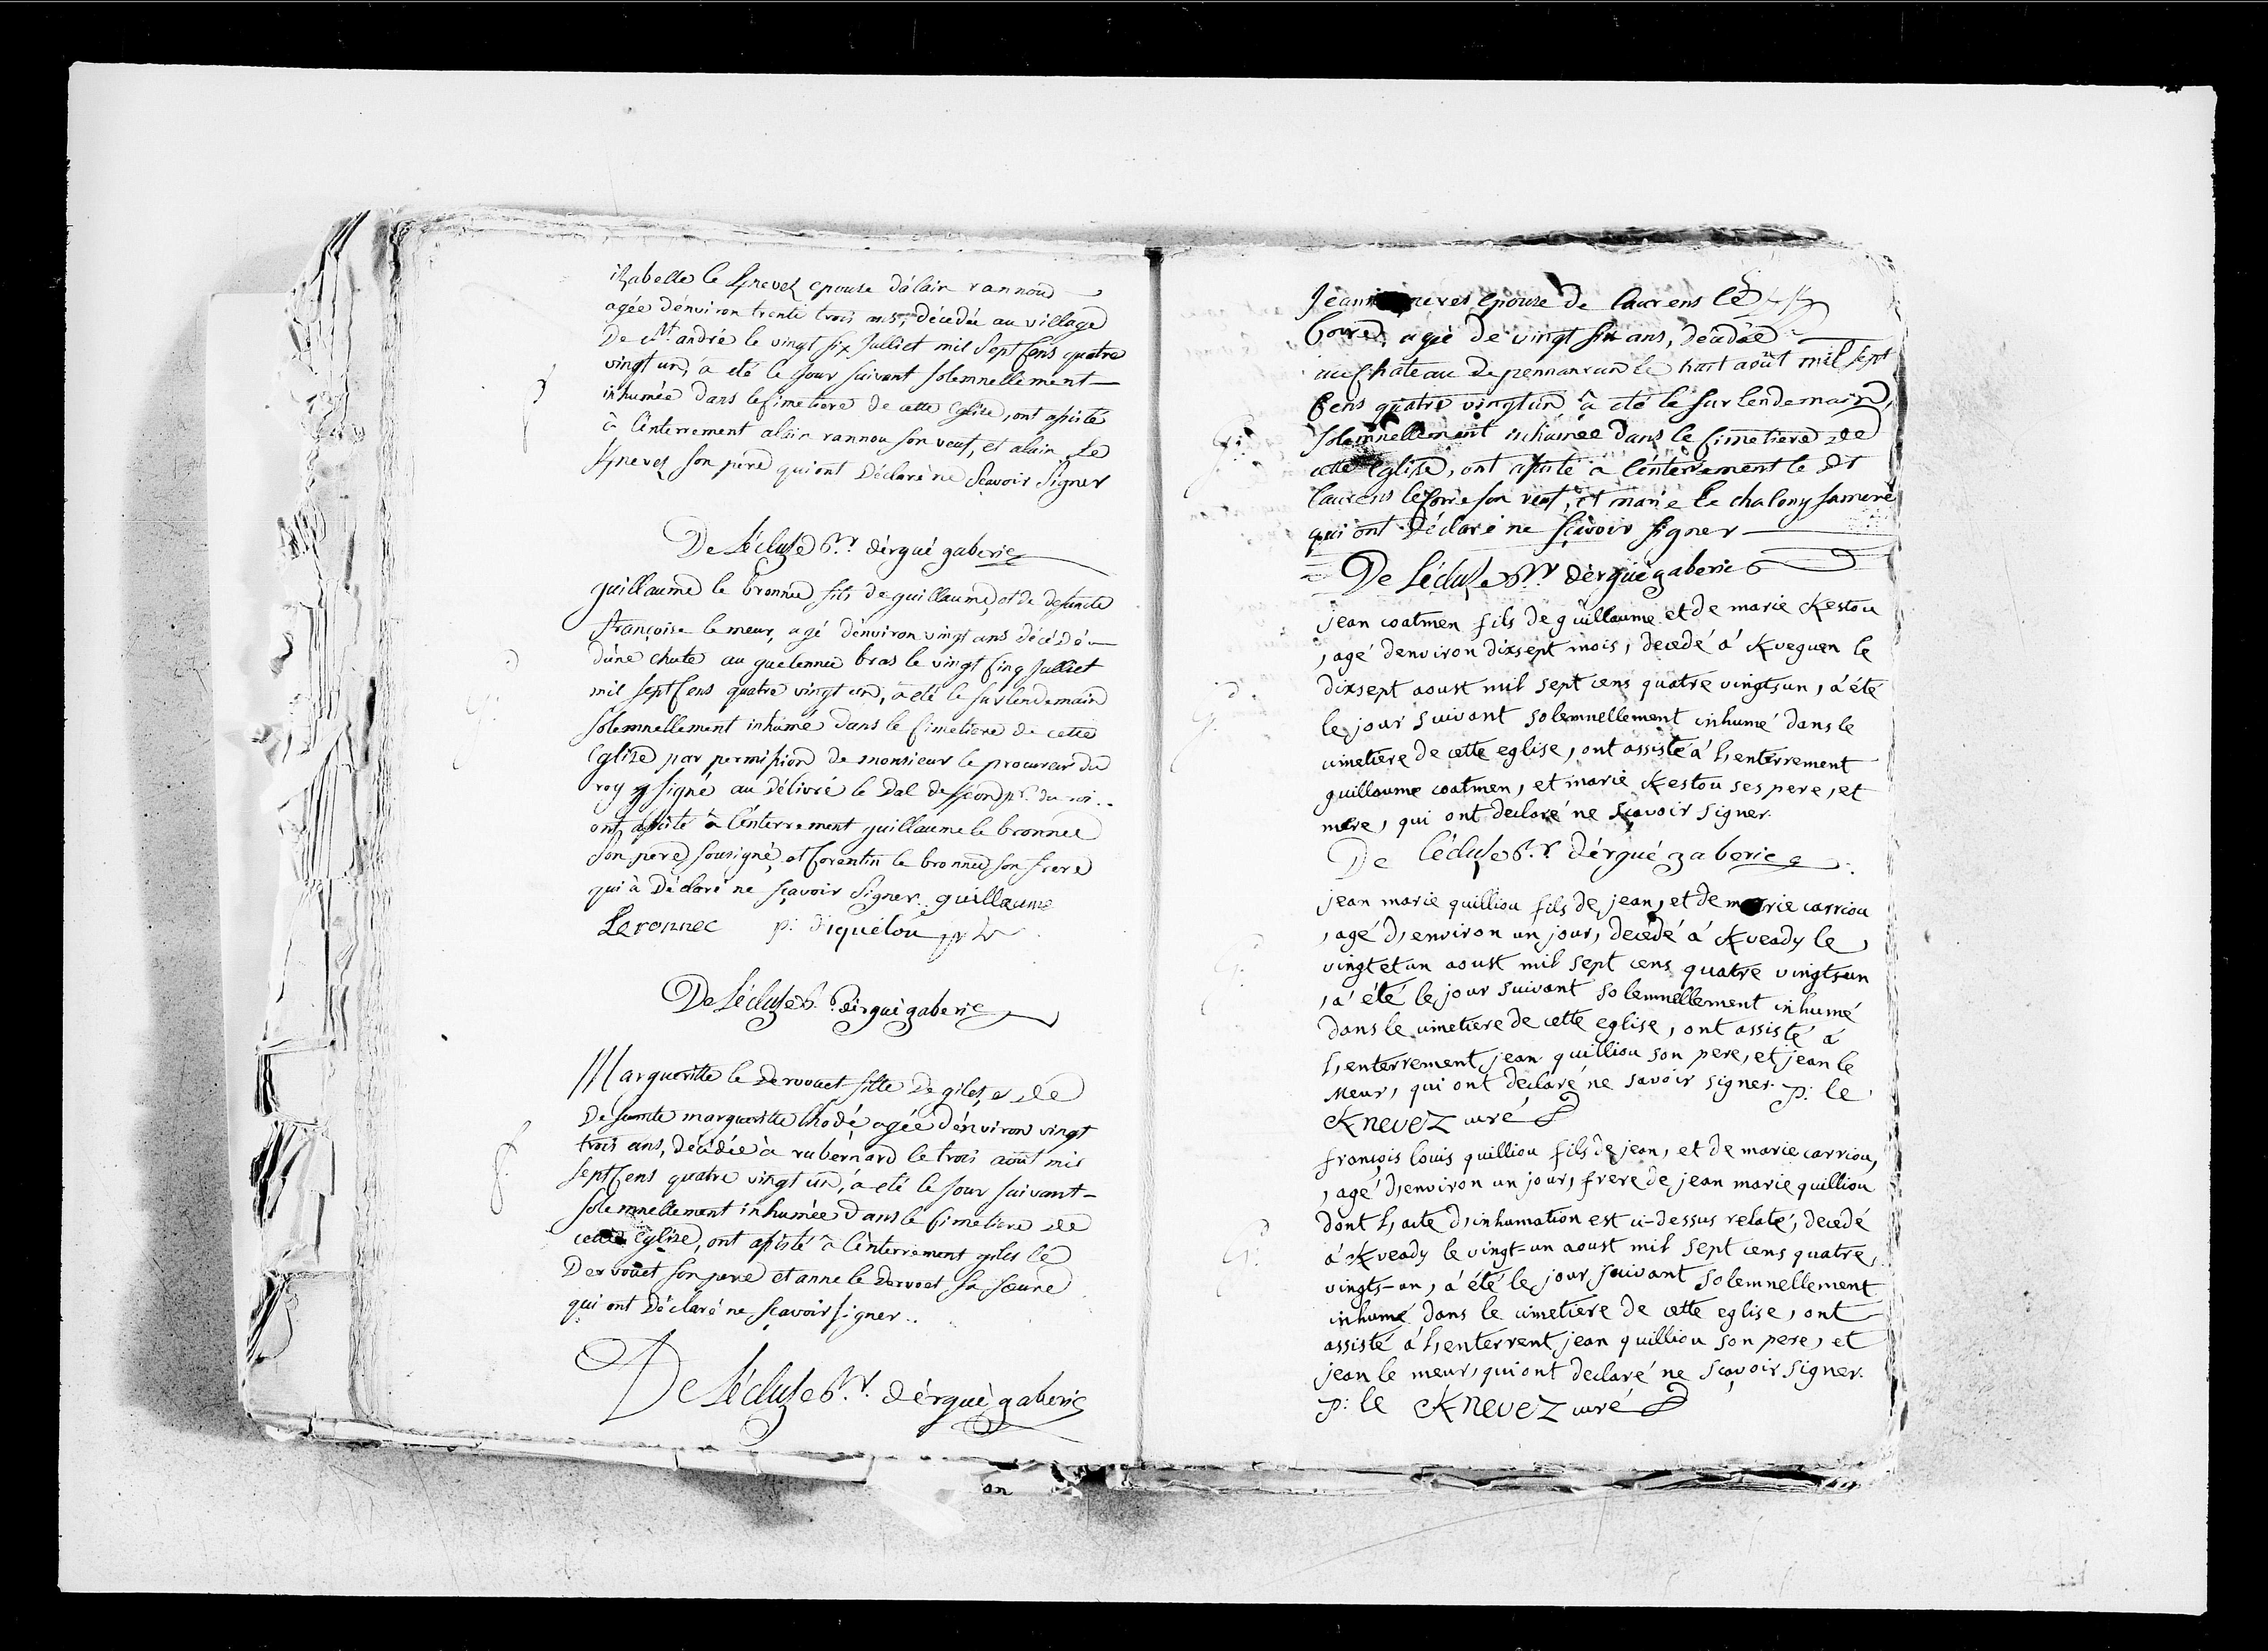 izabelle le Knevez epouse d'alain rannou
agée d'environ trente trois ans, décédée au village
De St. andré le vingt six Julliet mil Sept Cens quatre
vingt un, a eté le Jour suivant solemnellement
inhumée dans le Cimetiere de cette Eglise, ont assisté
à L'enterrement alain rannou son veuf, et alain Le
Knevez son pére qui ont Déclaré ne Scavoir Signer
De Lécluse br. d'ergué gaberic
guillaume le bronnec fils de guillaume, et de defuncte
françoise le meur, agé d'environ vingt ans décédé
d'une chute au guelennec bras le vingt Cinq Julliet
mil Sept Cens quatre vingt un, a eté le surlendemain
Solemnellement inhumé dans le Cimetiere de cette
Eglise par permission de monsieur le procureur du
roy signé au délivré le Dal du roi
ont assisté à L'enterrement guillaume le bronnec
Son pere, sousigné, et Corentin le bronnec son frere
qui à Déclaré ne sçavoir signer. guillaume
Leronnec p: diquelou
De Lécluse br. d'ergué gaberic
Margueritte le Dervouet fille De giles, et de
Defuncte margueritte lhodé agée d'environ vingt
trois ans, décédée à rubernard le trois août mil
Sept Cens quatre vingt un, a eté le Jour suivant
Solemnellement inhumée dans le Cimetiere de
cette Eglise, ont assisté à L'enterrement giles le
Dervouet son pere et anne le Dervoet sa soeure
qui ont Déclaré ne sçavoir signer..
De Lécluse br. d'ergué gaberic
an
epouse De laurens Le
agée De vingt six ans, décédée
au Chateau De pennanrun le huit août mil Sept
Cens quatre vingt un à eté le surlendemain,
Solemnellement inhumée Dans le Cimetiere de
cette Eglise, ont assisté à L'enterrement le dt
laurens son veuf, et marie Le chalony sa mere
qui ont Déclaré ne sçavoir signer
De Lécluse br. d'ergué gaberic
jean coatmen fils de guillaume et de marie Kestou
, agé d'environ dixsept mois, decedé á Kveguen le
dixsept aoust mil sept cens quatre vingts un, á été
le jour suivant solemnellement inhumé dans le
cimetiere de cette eglise, ont assisté á l,enterrement
guillaume coatmen, et marie Kestou ses pere, et
mere, qui ont declaré ne sçavoir signer.
De Lécluse br. d'ergué gaberic
jean marie quilliou fils de jean, et de marie carriou
, agé d,environ un jour, decedé á Kveady le,
vingt et un aoust mil sept cens quatre vingts un
, á été le jour suivant solemnellement inhumé
dans le cimetiere de cette eglise, ont assisté á
l,enterrement jean quilliou son pere, et jean le
meur, qui ont declaré ne savoir signer. p: le
Knevez curé
françois louis quilliou fils de jean, et de marie carriou,
, agé d,environ un jour, frere de jean marie quilliou
dont l,acte d,inhumation est ci-dessus relaté, decedé
á Kveady le vingt-un aoust mil sept cens quatre,
vingts-un, á été le jour suivant solemnellement
inhumé dans le cimetiere de cette eglise, ont
assisté á l,enterrent jean quilliou son pere, et
jean le meur, qui ont declaré ne sçavoir signer.
p: le Knevez curé